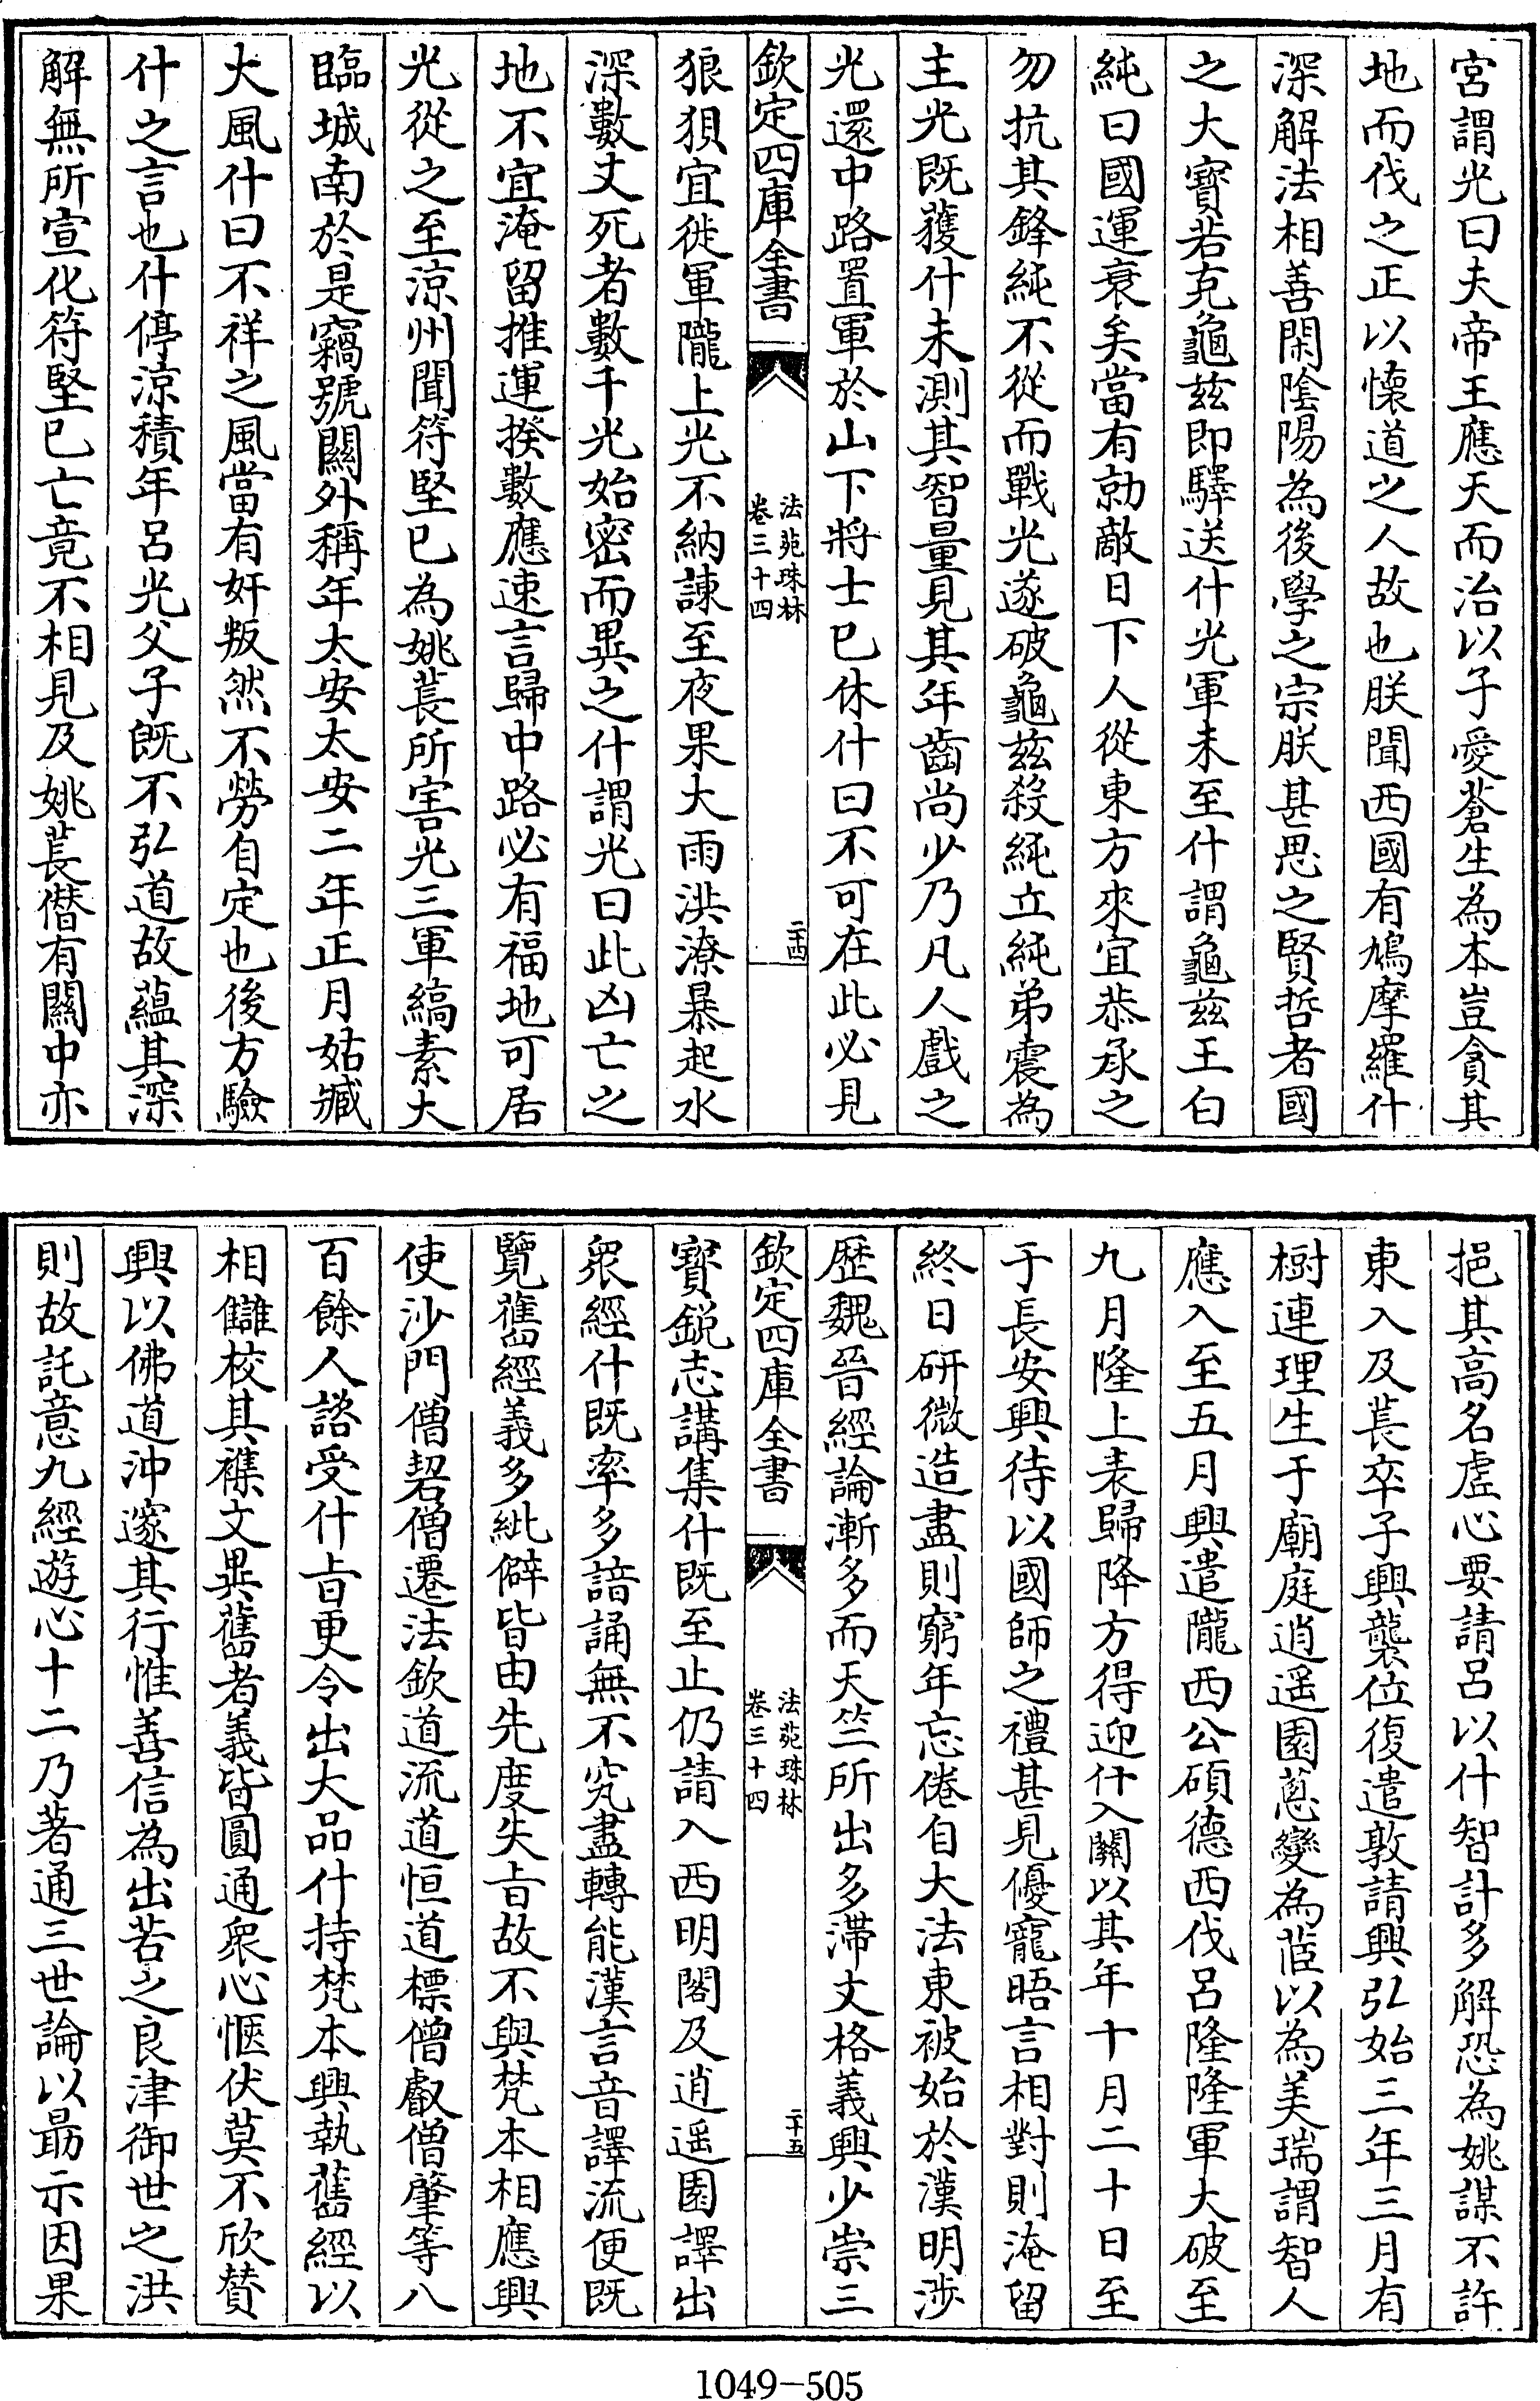 宮謂光曰夫帝王應天而治以子愛蒼生為本豈貪其
地而伐之正以懷道之人故也朕聞西國有鳩摩羅什
深解法相善閑陰陽為後學之宗朕甚思之賢哲者國
之大寶若克龜茲即驛送什光軍未至什謂龜茲王白
純曰國運衰矣當有勍敵日下人從東方來宜恭承之
勿抗其鋒純不從而戰光遂破龜茲殺純立純弟震為
主光既獲什未測其智量見其年齒尚少乃凡人戲之
光還中路置軍於山下將士已休什曰不可在此必見
欽定四庫全書
法苑珠林
卷三十四
二十四
狼狽宜徙軍隴上光不納諫至夜果大雨洪潦暴起水
深數丈死者數千光始密而異之什謂光曰此凶亡之
地不宜淹留推運揆數應速言歸中路必有福地可居
光從之至涼州聞符堅已為姚萇所害光三軍縞素大
臨城南於是竊號關外稱年太安太安二年正月姑臧
大風什曰不祥之風當有奸叛然不勞自定也後方驗
什之言也什停涼積年呂光父子既不弘道故蘊其深
解無所宣化符堅已亡竟不相見及姚萇僭有關中亦
挹其高名虛心要請呂以什智計多解恐為姚謀不許
東入及萇卒子興襲位復遣敦請興弘始三年三月有
樹連理生于廟庭逍遙園蔥變為茝以為美瑞謂智人
應入至五月興遣隴西公碩德西伐呂隆隆軍大破至
九月隆上表歸降方得迎什入關以其年十月二十日至
于長安興待以國師之禮甚見優寵晤言相對則淹留
終日研微造盡則窮年忘倦自大法東被始於漢明涉
歷魏晉經論漸多而天竺所出多滯文格義興少崇三
欽定四庫全書
法苑珠林
卷三十四
二十五
寶銳志講集什既至止仍請入西明閣及逍遙園譯出
眾經什既率多諳誦無不究盡轉能漢言音譯流便既
覽舊經義多紕僻皆由先度失旨故不與梵本相應興
使沙門僧䂮僧遷法欽道流道恒道標僧叡僧肇等八
百餘人諮受什旨更令出大品什持梵本興執舊經以
相讎校其襍文異舊者義皆圓通眾心愜伏莫不欣贊
興以佛道沖邃其行惟善信為出苦之良津御世之洪
則故託意九經遊心十二乃著通三世論以勗示因果
1049-505